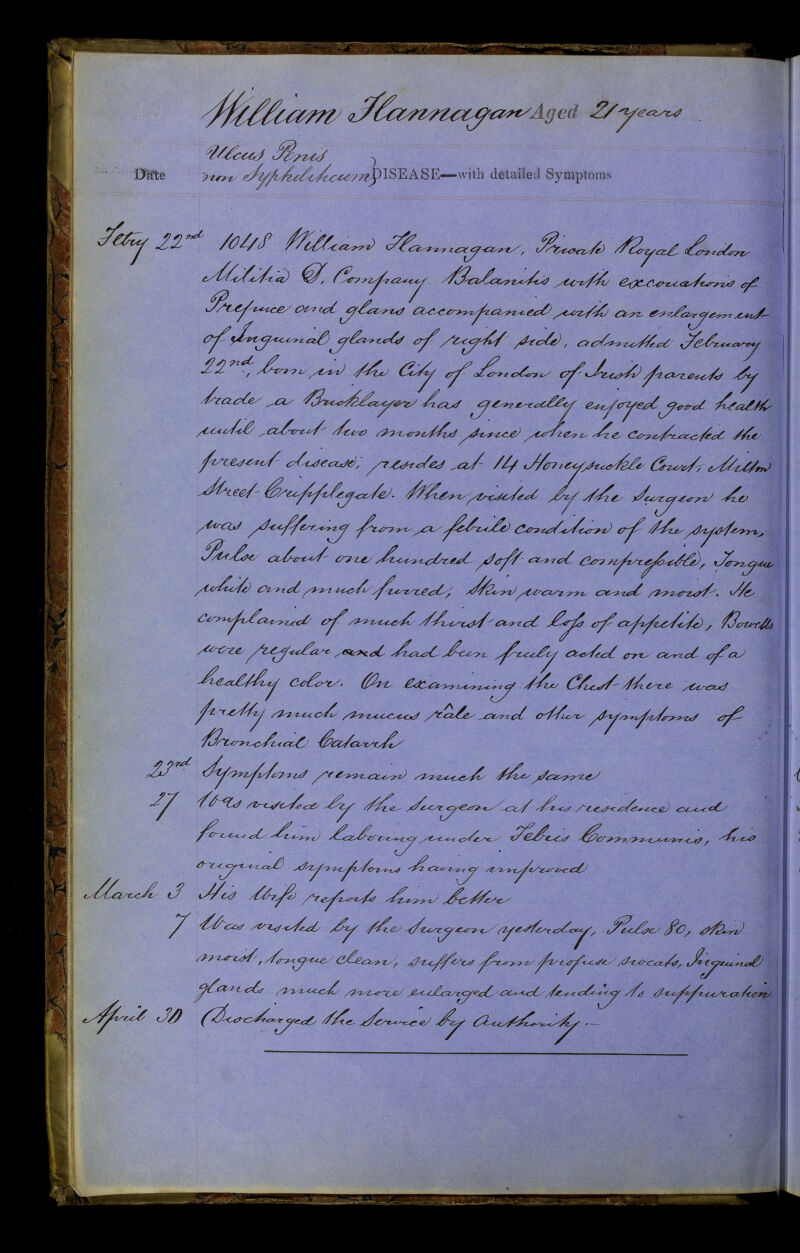 William Flannagan Aged 21 years
Ulcus Penis
Date non Syphiliticum} DISEASE—with detailed Symptoms
Febry 22nd 1048 William Flannagan, Private Royal London
Militia D. Company Balanitis with excoriations of
Prepuce and glans accompanied with an enlargement
of Inguinal glands of right side, admitted February
22nd, born in the City of London of Irish parents by
trade a Bricklayer has generally enjoyed good health
until about two months since when he contracted the
present disease; resides at 14 Honeysuckle Court, Milton
Street Cripplegate. When visited by the Surgeon he
was suffering from a febrile condition of the system,
Pulse about one hundred soft and compressible, Tongue
white and much furred, Skin warm and moist. He
complained of much thirst and loss of appetite, Bowells
were regular and had been freely acted on and of a
healthy color. On examining the Chest there was
pretty much mucus râle and other symptoms of
Bronchial Catarrh
23rd Symptoms remain much the same
27 Was visited by the Surgeon at his residence and
found him laboring under Febris Communis, his
original symptoms having improved
March 3 His Wife reports him better
7 Was visited by the Surgeon yesterday, Pulse 80, skin
moist, tongue clean, suffers from profuse sweats, Inguinal
glands much more enlarged and tending to suppuration
April 30 Discharged the Service by Authority.—